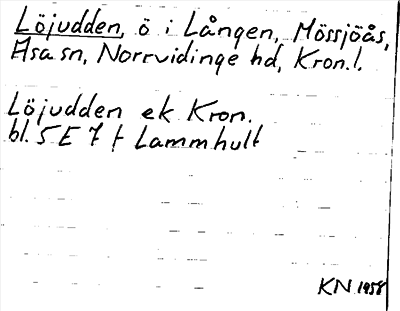 Löjudden, ö i Lången, Mössjöås,
Asa sn, Norrvidinge hd, Kron.l.
Löjudden ek Kron.
bl. 5 E 7 f Lammhult
KN 1958